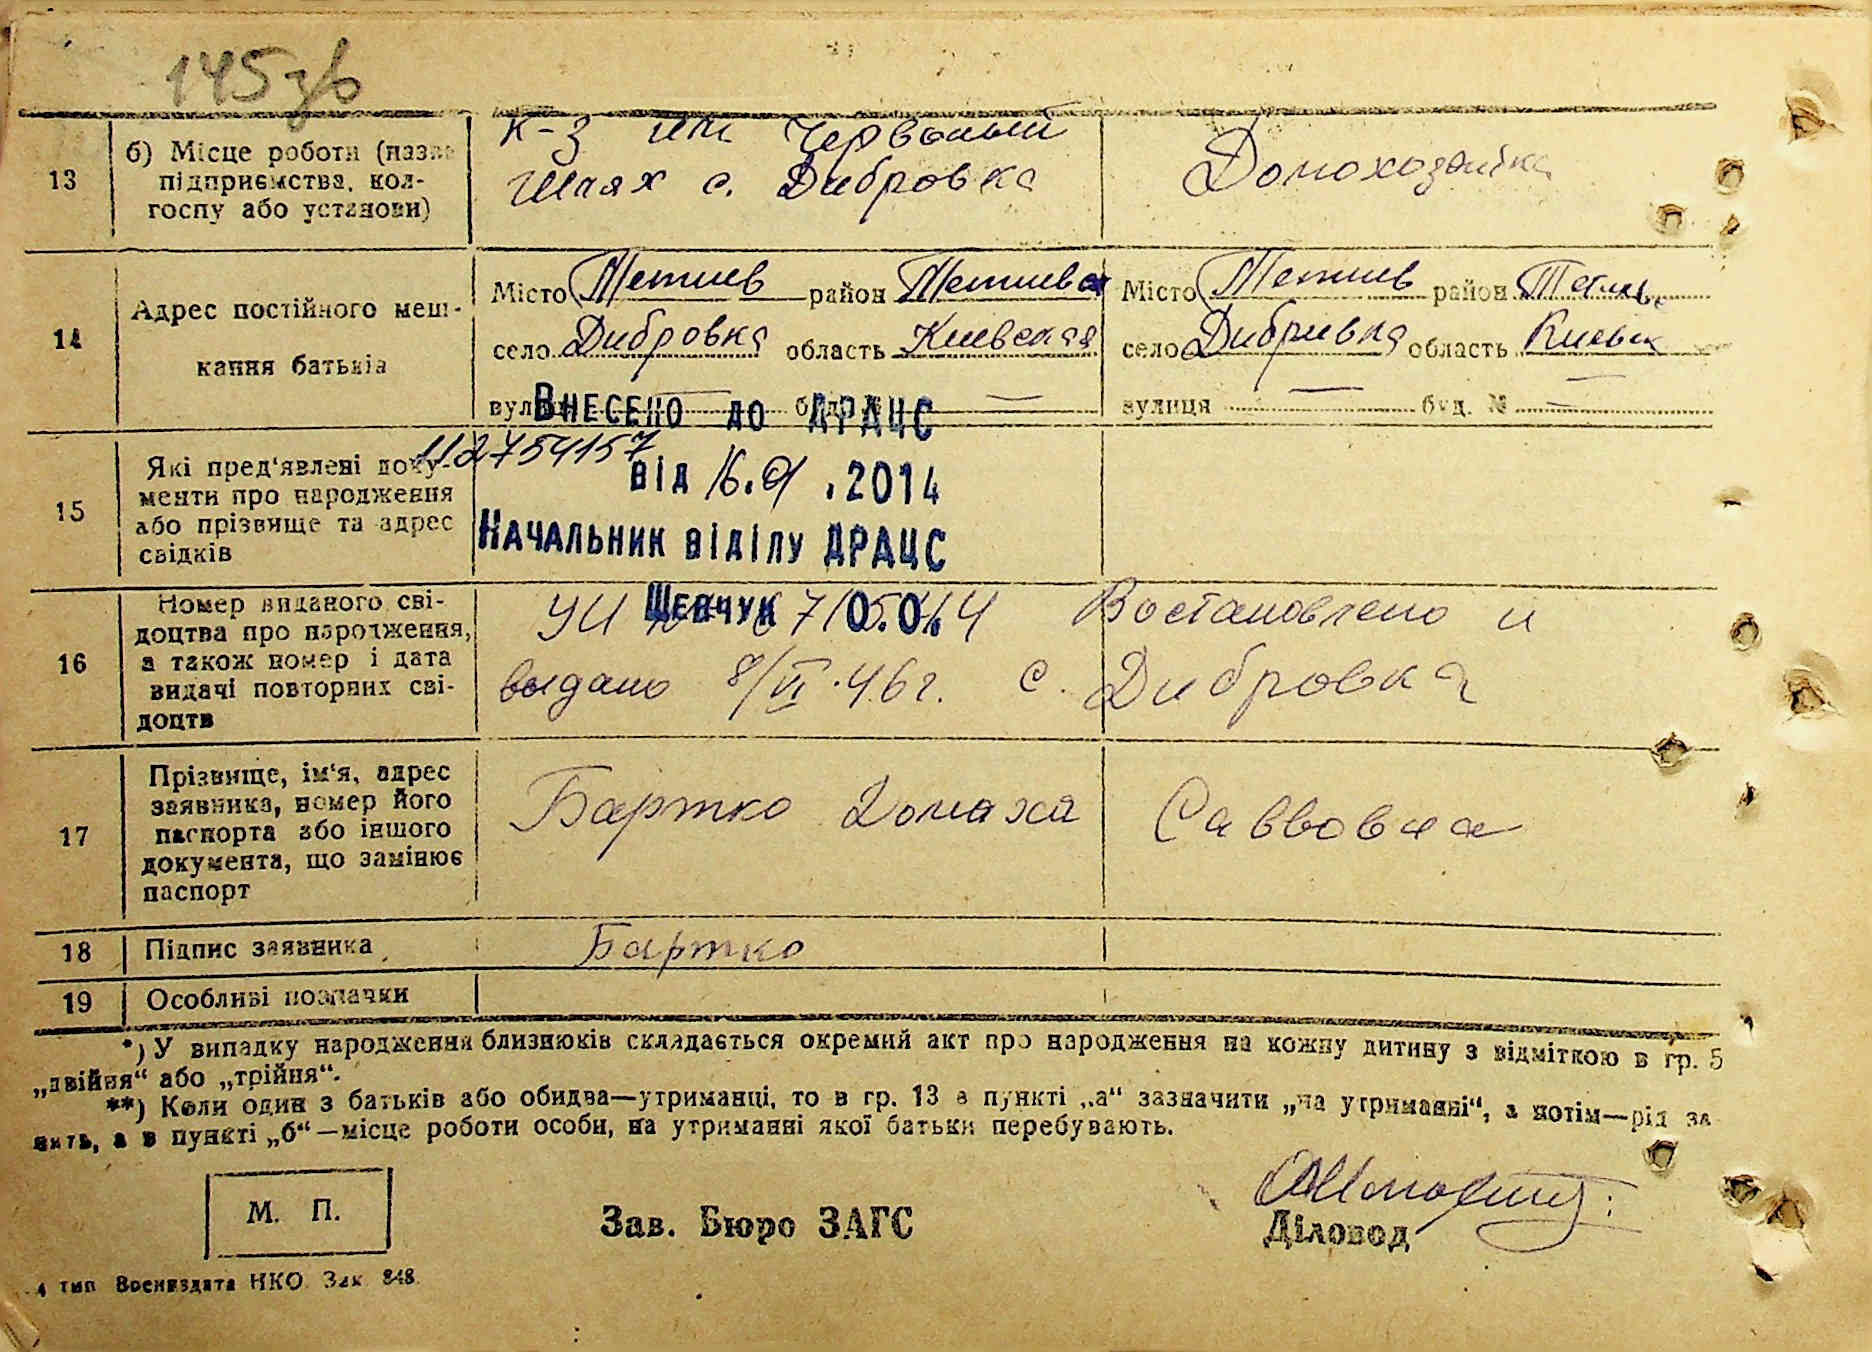 145зв
13
б) Місце роботи (назва
підприємства, кол-
госпу або установи)
к-з им Червоный
Шлях с. Дибровка
Домохозяйка
14
Адрес постійного меш-
кання батьків
Місто Тетиев район Тетиевск
село Дибровка область Киевская
вулиця — буд. № —
Місто Тетиев район
село Дибривка область Киевск
вулиця — буд. № —
Внесено до ДРАЦС
15
Які пред'явлені доку-
менти про народження
або прізвище та адрес
свідків
112754157
від 16.01.2014
Начальник відділу ДРАЦС
Шевчук О.О.
16
Номер виданого сві-
доцтва про народження,
а також номер і дата
видачі повторних сві-
доцтв
УИ Востановлено и
выдано 8/VI.46г. с. Дибровка
17
Прізвище, ім'я, адрес
заявника, номер його
паспорта або іншого
документа, що замінює
паспорт
Бартко Домаха Саввовна
18 Підпис заявника Бартко
19 Особливі позначки
*) У випадку народження близнюків складається окремий акт про народження на кожну дитину з відміткою в гр. 5
„двійня“ або „трійня“.
**) Коли один з батьків або обидва—утриманці, то в гр. 13 в пункті „а“ зазначити „на утриманні“, а потім—рід за
нять, а в пункті „б“—місце роботи особи, на утриманні якої батьки перебувають.
М. П.
Зав. Бюро ЗАГС
Діловод
4 тип Воениздата НКО Зак 848